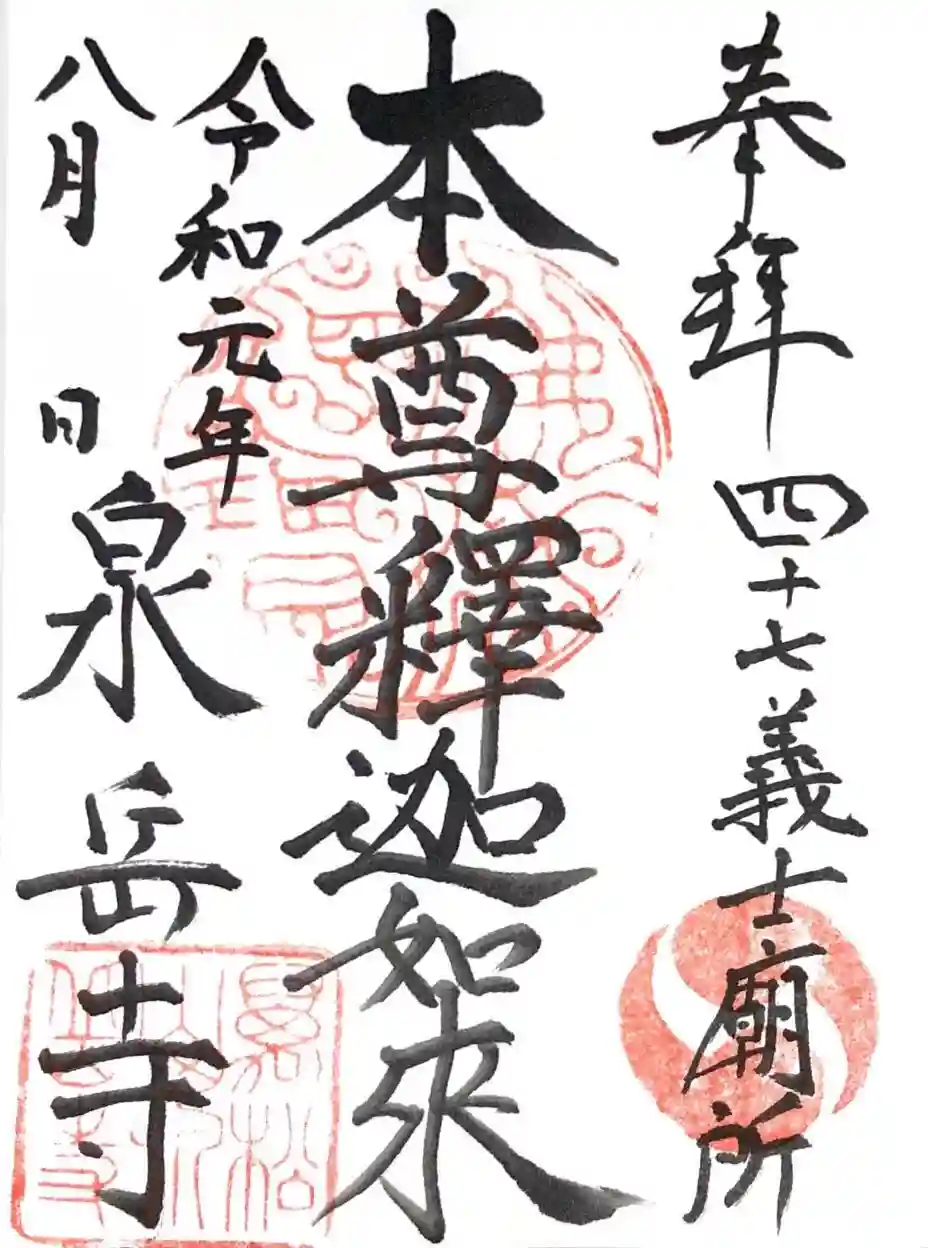 奉拜 四十七義士廟所
本尊釋迦如來
令和元年
八月 日
泉岳寺